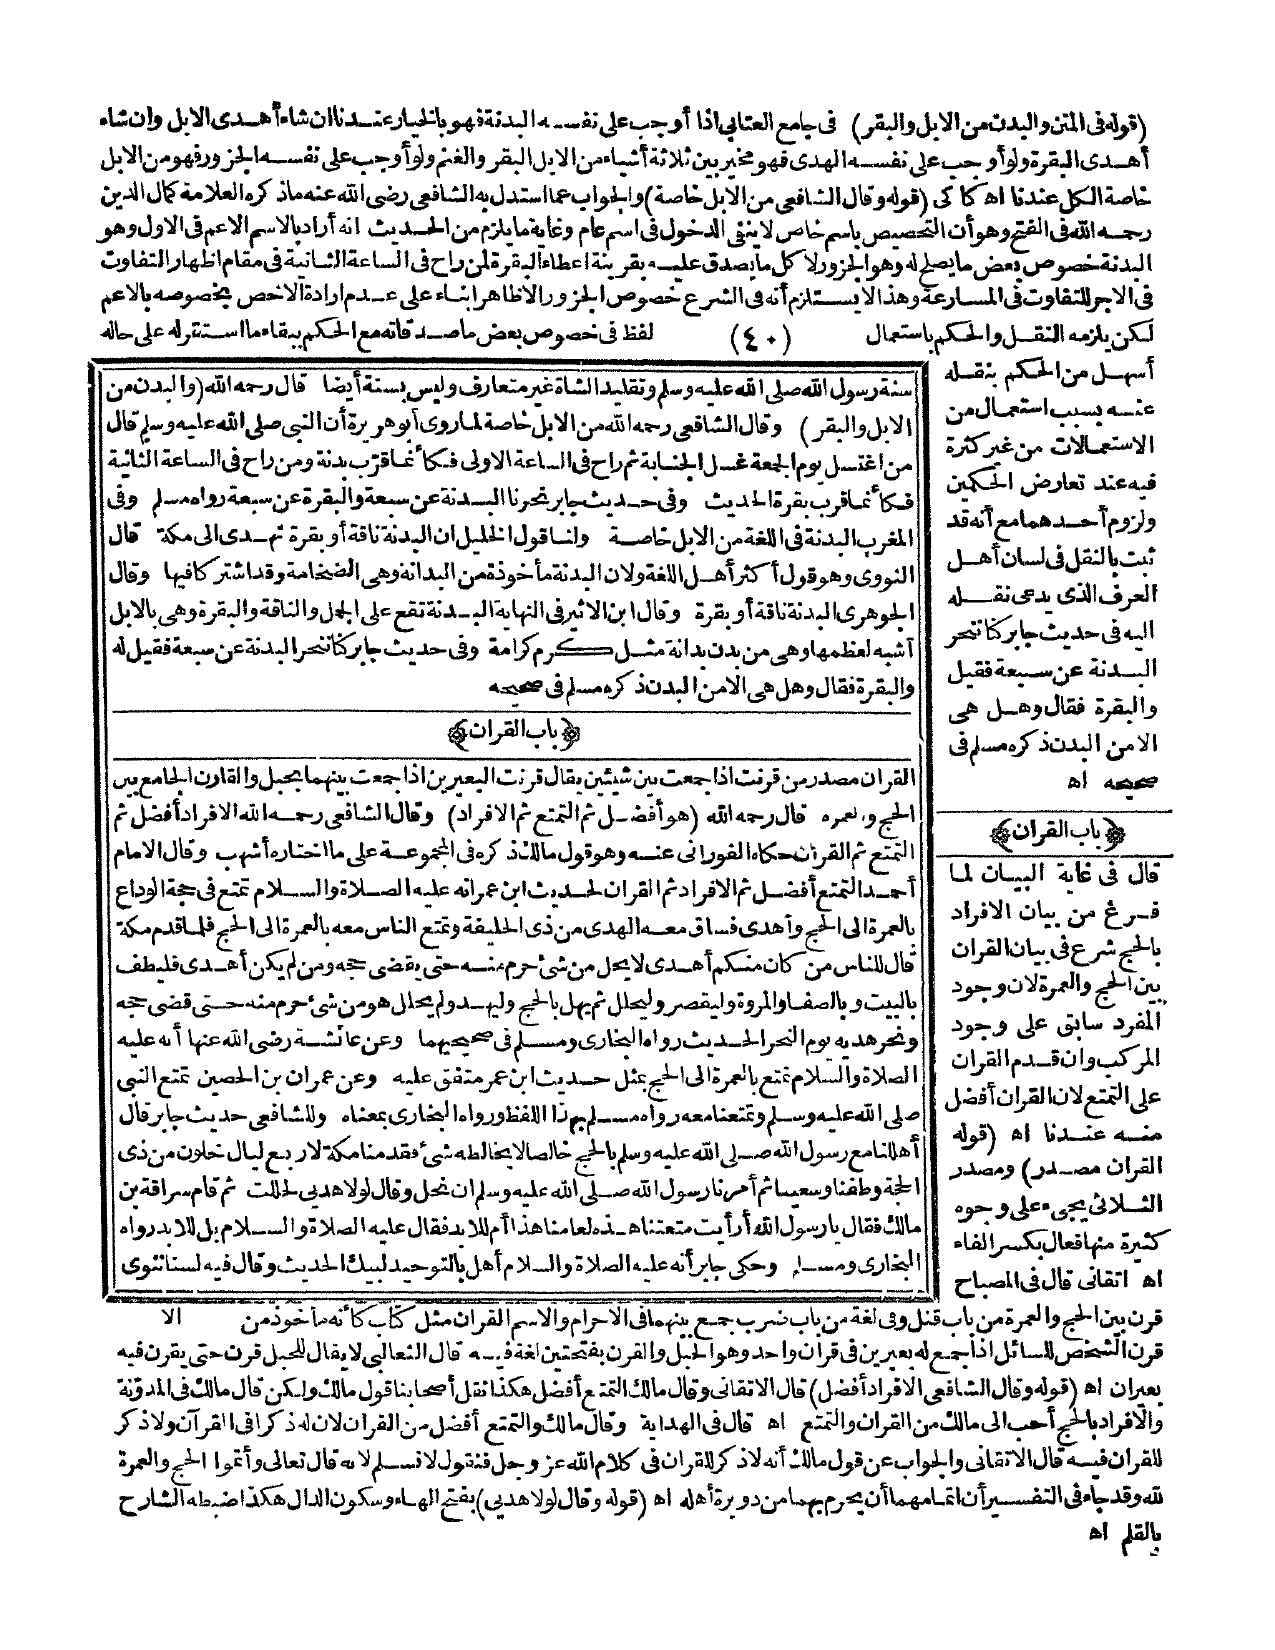 (قوله في المتن والبدن من الابل والبقر) في جامع العتابي اذا أوجب على نفسه البدنة فهو بالخيار عندنا ان شاء أهدى الابل وان شاء
أهدى البقرة ولو أوجب على نفسه الهدى فهو مخير بين ثلاثة أشياء من الابل البقر والغنم ولو أوجب على نفسه الجزور فهو من الابل
خاصة الكل عندنا اه كاكى (قوله وقال الشافعي من الابل خاصة) والجواب عما استدل به الشافعي رضى الله عنه ماذكره العلامة كمال الدين
رحمه الله في الفتح وهو أن التخصيص باسم خاص لا ينفي الدخول في اسم عام وغاية ما يلزم من الحديث انه أراد بالاسم الاعم في الاول وهو
البدنة خصوص بعض ما يصلح له وهو الجزور لا كل ما يصدق عليه بقرينة اعطاء البقرة لمن راح في الساعة الثانية في مقام اظهار التفاوت
في الاجر للتفاوت في المسارعة وهذا لا يستلزم أنه في الشرع خصوص الجزور الا ظاهرا بناء على عدم ارادة الاخص بخصوصه بالاعم
لكن يلزمه النقل والحكم باستعمال (٤٠) لفظ في خصوص بعض ما صدقاته مع الحكم ببقاء ما استقر له على حاله
أسهل من الحكم بنقله
عنه بسبب استعمال من
الاستعمالات من غير كثرة
فيه عند تعارض الحكمين
ولزوم أحدهما مع أنه قد
ثبت بالنقل في لسان أهل
العرف الذي يدعى نقله
اليه في حديث جابر كنا ننحر
البدنة عن سبعة فقيل
والبقرة فقال وهل هي
الا من البدن ذكره مسلم في
صحيحه اه
﴿باب القران﴾
قال في غاية البيان لما
فرغ من بيان الافراد
بالحج شرع في بيان القران
بين الحج والعمرة لان وجود
المفرد سابق على وجود
المركب وان قدم القران
على التمتع لان القران أفضل
منه عندنا اه (قوله
القران مصدر) ومصدر
الثلاثي يجيء على وجوه
كثيرة منها فعال بكسر الفاء
اه اتقانى قال في المصباح
سنة رسول الله صلى الله عليه وسلم وتقليد الشاة غير متعارف وليس بسنة أيضا قال رحمه الله (والبدن من
الابل والبقر) وقال الشافعي رحمه الله من الابل خاصة لما روى أبو هريرة أن النبي صلى الله عليه وسلم قال
من اغتسل يوم الجمعة غسل الجنابة ثم راح في الساعة الاولى فكأنما قرب بدنة ومن راح في الساعة الثانية
فكأنما قرب بقرة الحديث وفي حديث جابر نحرنا البدنة عن سبعة والبقرة عن سبعة رواه مسلم وفي
المغرب البدنة في اللغة من الابل خاصة ولنا قول الخليل ان البدنة ناقة أو بقرة تهدى الى مكة قال
النووى وهو قول أكثر أهل اللغة ولان البدنة مأخوذة من البدانة وهي الضخامة وقد اشتركا فيها وقال
الجوهرى البدنة ناقة أو بقرة وقال ابن الاثير في النهاية البدنة تقع على الجمل والناقة والبقرة وهي بالابل
أشبه لعظمها وهي من بدن بدانة مثل كرم كرامة وفي حديث جابر كنا ننحر البدنة عن سبعة فقيل له
والبقرة فقال وهل هي الا من البدن ذكره مسلم في صحيحه
﴿باب القران﴾
القران مصدر من قرنت اذا جمعت بين شيئين يقال قرنت البعيرين اذا جمعت بينهما بحبل والقارن الجامع بين
الحج والعمرة قال رحمه الله (هو أفضل ثم التمتع ثم الافراد) وقال الشافعي رحمه الله الافراد أفضل ثم
التمتع ثم القران حكاه الفورانى عنه وهو قول مالك ذكره في المجموعة على ما اختاره أشهب وقال الامام
أحمد التمتع أفضل ثم الافراد ثم القران لحديث ابن عمر انه عليه الصلاة والسلام تمتع في حجة الوداع
بالعمرة الى الحج وأهدى فساق معه الهدى من ذى الحليفة وتمتع الناس معه بالعمرة الى الحج فلما قدم مكة
قال للناس من كان منكم أهدى لا يحل من شئ حرم منه حتى يقضى حجه ومن لم يكن أهدى فليطف
بالبيت وبالصفا والمروة وليقصر وليحلل ثم يهل بالحج وليهد ولم يحلل هو من شئ حرم منه حتى قضى حجه
ونحر هديه يوم النحر الحديث رواه البخارى ومسلم في صحيحيهما وعن عائشة رضى الله عنها أنه عليه
الصلاة والسلام تمتع بالعمرة الى الحج بمثل حديث ابن عمر متفق عليه وعن عمران بن الحصين تمتع النبي
صلى الله عليه وسلم وتمتعنا معه رواه مسلم بهذا اللفظ ورواه البخارى بمعناه وللشافعي حديث جابر قال
أهللنا مع رسول الله صلى الله عليه وسلم بالحج خالصا لا يخالطه شئ فقدمنا مكة لاربع ليال خلون من ذى
الحجة وطفنا وسعينا ثم أمرنا رسول الله صلى الله عليه وسلم ان نحل وقال لولا هديي لحللت ثم قام سراقة بن
مالك فقال يا رسول الله أرأيت متعتنا هذه لعامنا هذا أم للابد فقال عليه الصلاة والسلام بل للابد رواه
البخارى ومسلم وحكى جابر أنه عليه الصلاة والسلام أهل بالتوحيد لبيك الحديث وقال فيه لسنا ننوى
الا
قرن بين الحج والعمرة من باب قتل وفي لغة من باب ضرب جمع بينهما في الاحرام والاسم القران مثل كتاب كأنه مأخوذ من
قرن الشخص للسائل اذا جمع له بعيرين في قران واحد وهو الحبل والقرن بفتحتين لغة فيه قال الثعالبي لا يقال للحبل قرن حتى يقرن فيه
بعيران اه (قوله وقال الشافعي الافراد أفضل) قال الاتقانى وقال مالك التمتع أفضل هكذا نقل أصحابنا قول مالك ولكن قال مالك في المدونة
والافراد بالحج أحب الى مالك من القران والتمتع اه قال في الهداية وقال مالك والتمتع أفضل من القران لان له ذكرا في القرآن ولا ذكر
للقران فيه قال الاتقانى والجواب عن قول مالك أنه لا ذكر للقران في كلام الله عز وجل فنقول لا نسلم لانه قال تعالى وأتموا الحج والعمرة
لله وقد جاء في التفسير أن اتمامهما أن يحرم بهما من دويرة أهله اه (قوله وقال لولا هديي) بفتح الهاء وسكون الدال هكذا ضبطه الشارح
بالقلم اه